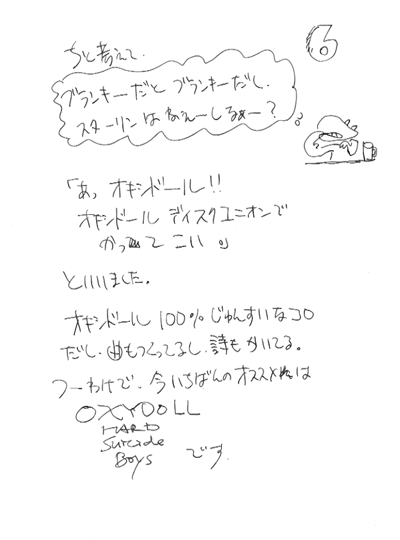 ⑥
ちと考えて、
ブランキーだと ブランキーだし、
スターリンは ねぇーしなぁー?
「あっ オキシドール!!
オキシドール ディスクユニオンで
かって こい」
といいました。
オキシドール 100% じゅんすいなコロ
だし、曲もつくってるし、詩もかいてる。
つーわけで、今いちばんのオススメは
OXYDOLL
HARD
Suicide
Boys です。